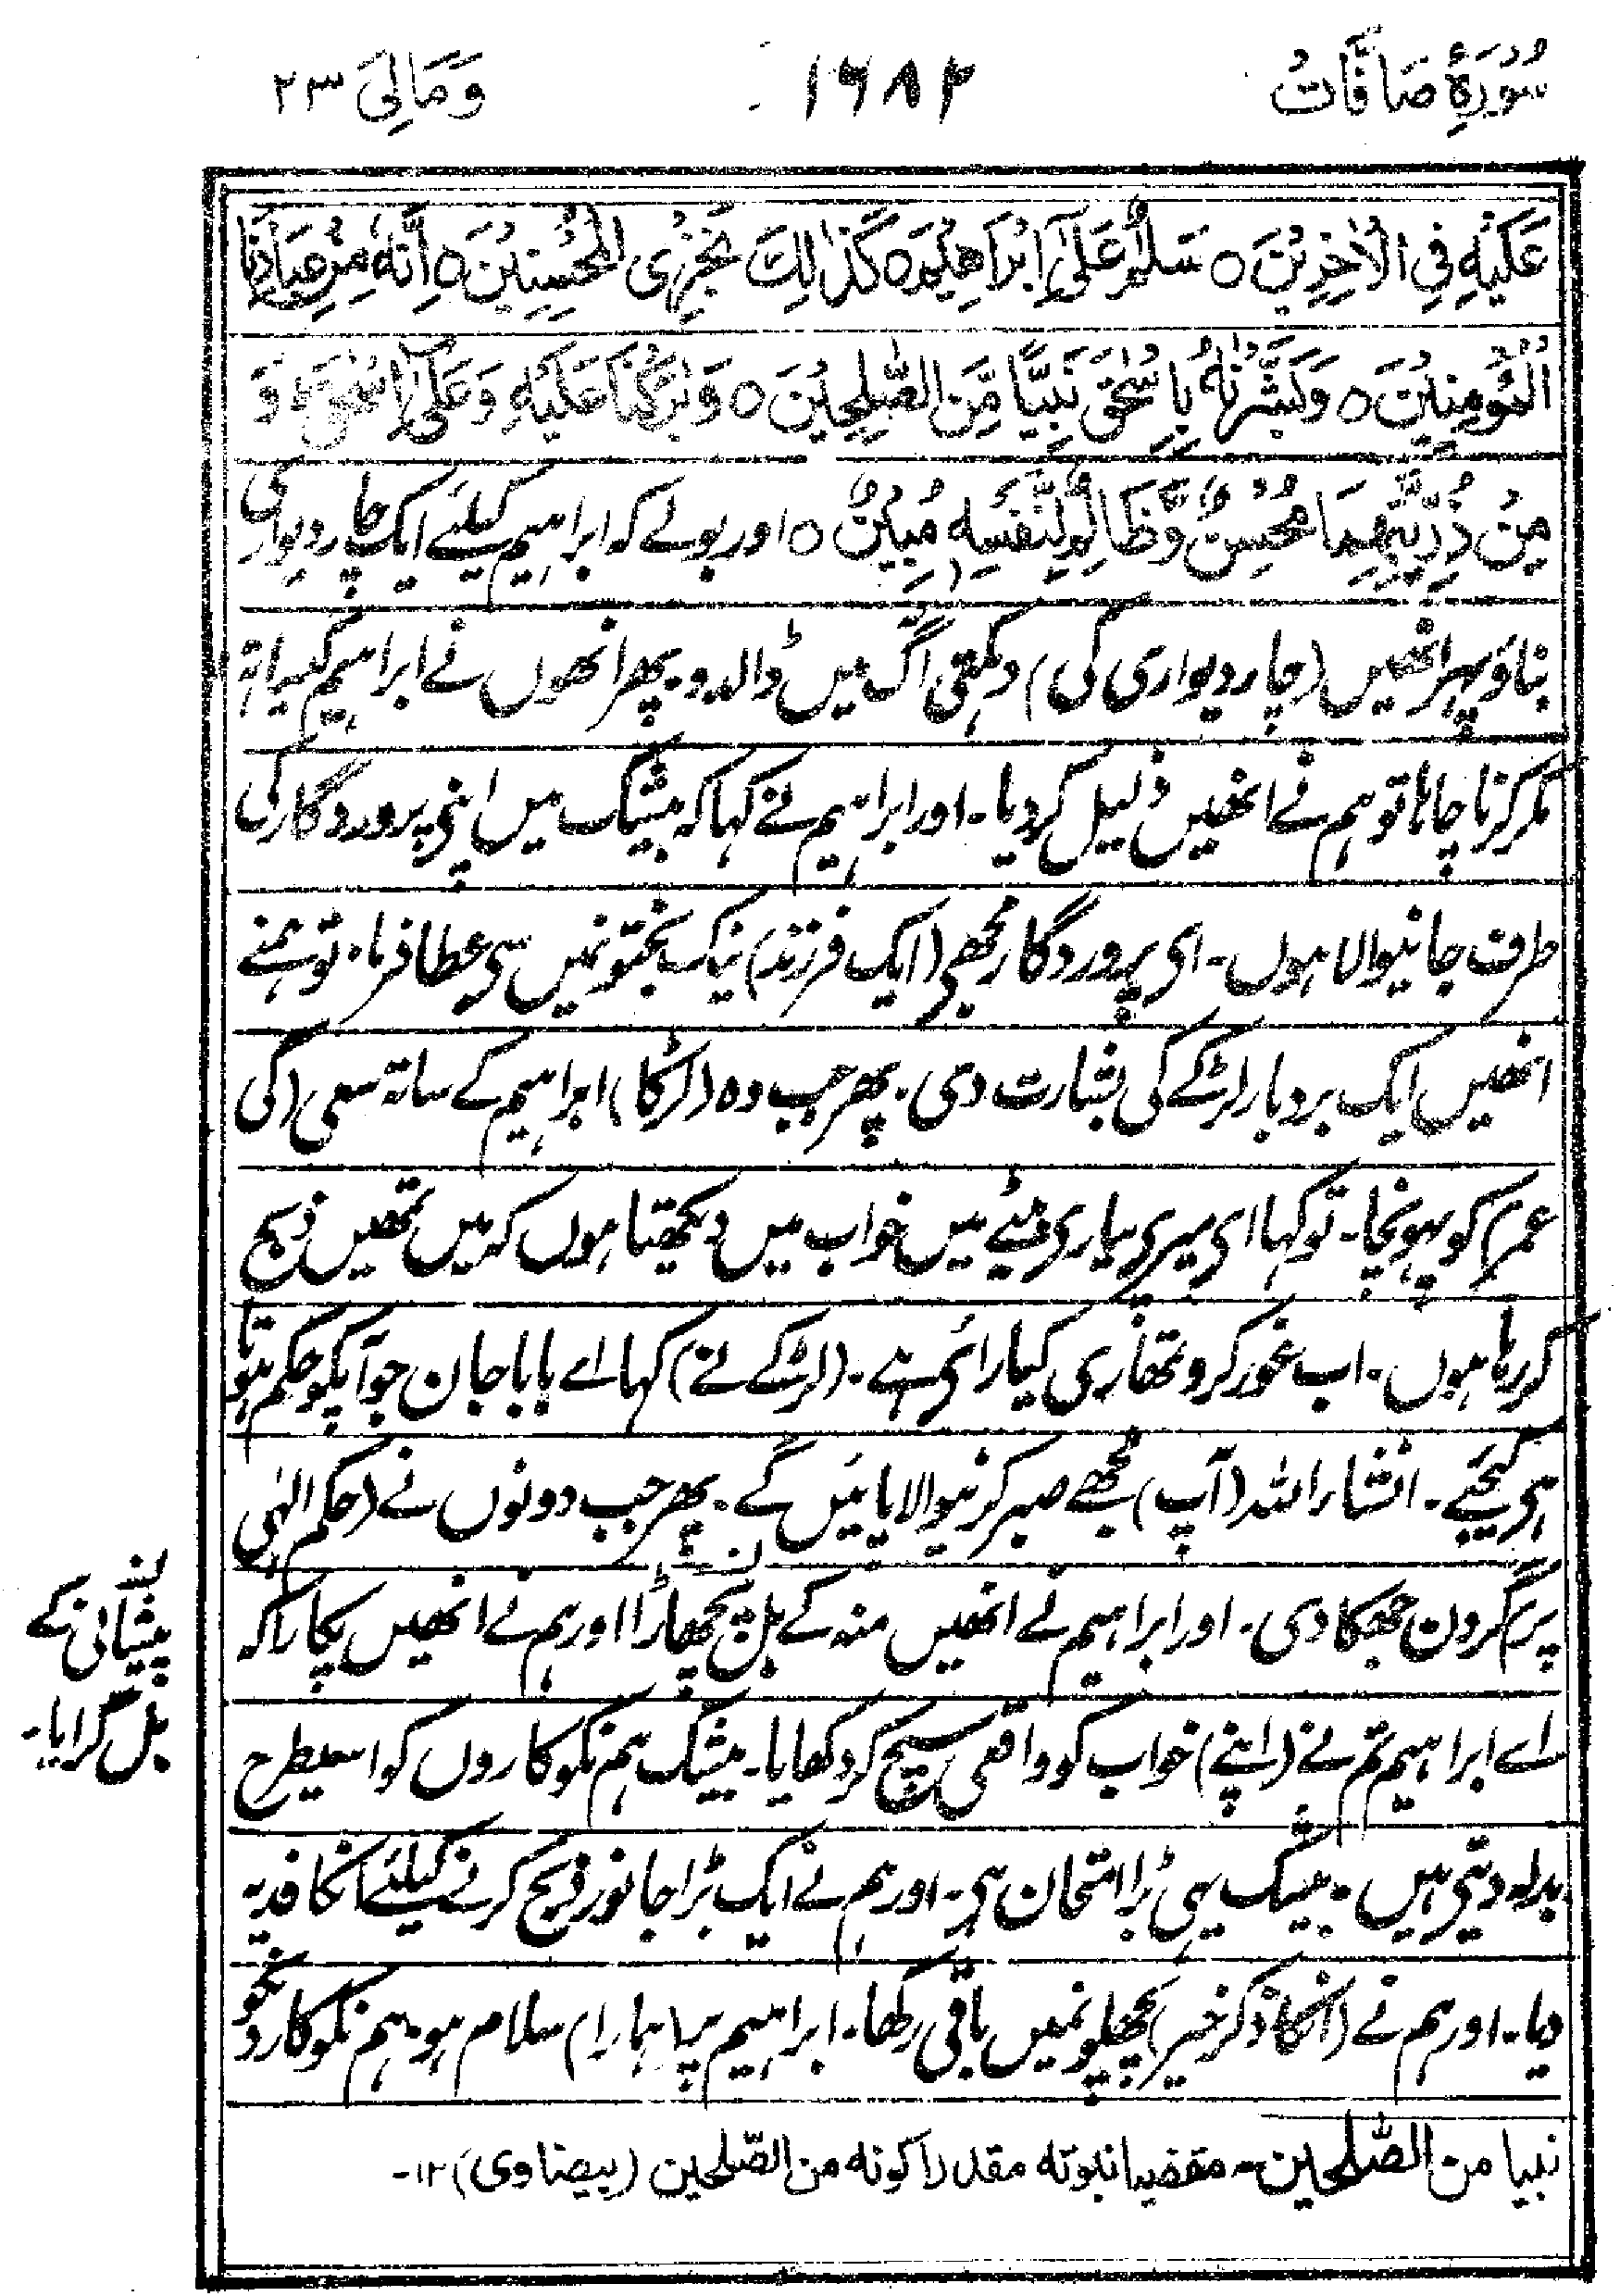 سُوْرَۃُ صَافَّات ۱۶۸۲ وَمَالِیَ ۲۳
عَلَيْهِ فِي الْاٰخِرِيْنَ ۝ سَلٰمٌ عَلٰٓى اِبْرَاهِيْمَ ۝ كَذٰلِكَ نَجْزِى الْمُحْسِنِيْنَ ۝ اِنَّهٗ مِنْ عِبَادِنَا
الْمُؤْمِنِيْنَ ۝ وَبَشَّرْنٰهُ بِاِسْحٰقَ نَبِيًّا مِّنَ الصّٰلِحِيْنَ ۝ وَبٰرَكْنَا عَلَيْهِ وَعَلٰٓى اِسْحٰقَ ؕ وَ
مِنْ ذُرِّيَّتِهِمَا مُحْسِنٌ وَّظَالِمٌ لِّنَفْسِهٖ مُبِيْنٌ ۝ اور بولے کہ ابراہیم کیلئے ایک چار دیواری
بناؤ پھر انھیں (چار دیواری کی) دہکتی آگ میں ڈالدو۔ پھر انھوں نے ابراہیم کیساتھ
مکر کرنا چاہا تو ہم نے انھیں ذلیل کر دیا۔ اور ابراہیم نے کہا کہ بیشک میں اپنی پروردگار کی
طرف جانیوالا ہوں۔ ای پروردگار مجھی (ایک فرزند) نیک بختونمیں سی عطا فرما۔ تو ہمنے
انھیں ایک بردبار لڑکے کی بشارت دی۔ پھر جب وہ (لڑکا) ابراہیم کے ساتھ سعی (کی
عمر) کو پہونچا۔ تو کہا ای میری پیاری بیٹے میں خواب میں دیکھتا ہوں کہ میں تمھیں ذبح
کر رہا ہوں۔ اب غور کرو تمھاری کیا رائی ہے۔ (لڑکے نے) کہا اے بابا جان جو آپکو حکم ہوتا
ہی کیجئے۔ انشاراللہ (آپ) مجھے صبر کرنیوالا پائیں گے۔ پھر جب دونوں نے (حکم الٰہی
پر) گردن جھکا دی۔ اور ابراہیم نے انھیں منہ کے بل پچھاڑا اور ہم نے انھیں پکارا کہ
پیشانی کے
بل گرایا۔
اے ابراہیم تم نے (اپنے) خواب کو واقعی سچ کر دکھایا۔ بیشک ہم نکوکاروں کو اسیطرح
بدلہ دیتی ہیں۔ بیشک یہی بڑا امتحان ہی۔ اور ہم نے ایک بڑا جانور ذبح کرنے کیلئے انکا فدیہ
دیا۔ اور ہم نے (انکا ذکر خیر) پچھلونمیں باقی رکھا۔ ابراہیم پر (ہمارا) سلام ہو۔ ہم نکوکارونکو
نبیا من الصّٰلحین۔ مقضیا نبوته مقدرا کونه من الصّٰلحین (بیضاوی) ۱۲۔